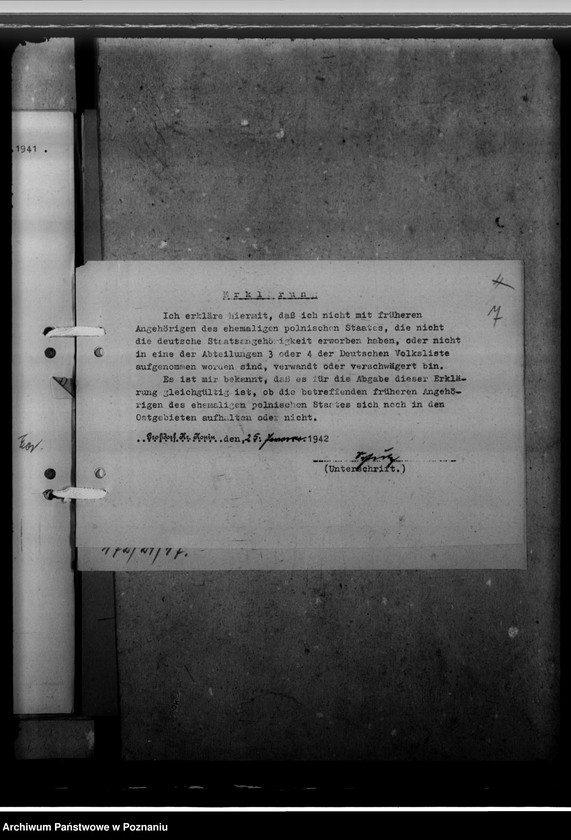 1941 .
7
Erklärung
Ich erkläre hiermit, daß ich nicht mit früheren
Angehörigen des ehemaligen polnischen Staates, die nicht
die deutsche Staatsangehörigkeit erworben haben, oder nicht
in eine der Abteilungen 3 oder 4 der Deutschen Volksliste
aufgenommen worden sind, verwandt oder verschwägert bin.
Es ist mir bekannt, daß es für die Abgabe dieser Erklä-
rung gleichgültig ist, ob die betreffenden früheren Angehö-
rigen des ehemaligen polnischen Staates sich noch in den
Ostgebieten aufhalten oder nicht.
den, 25. Januar 1942
(Unterschrift.)
Archiwum Państwowe w Poznaniu